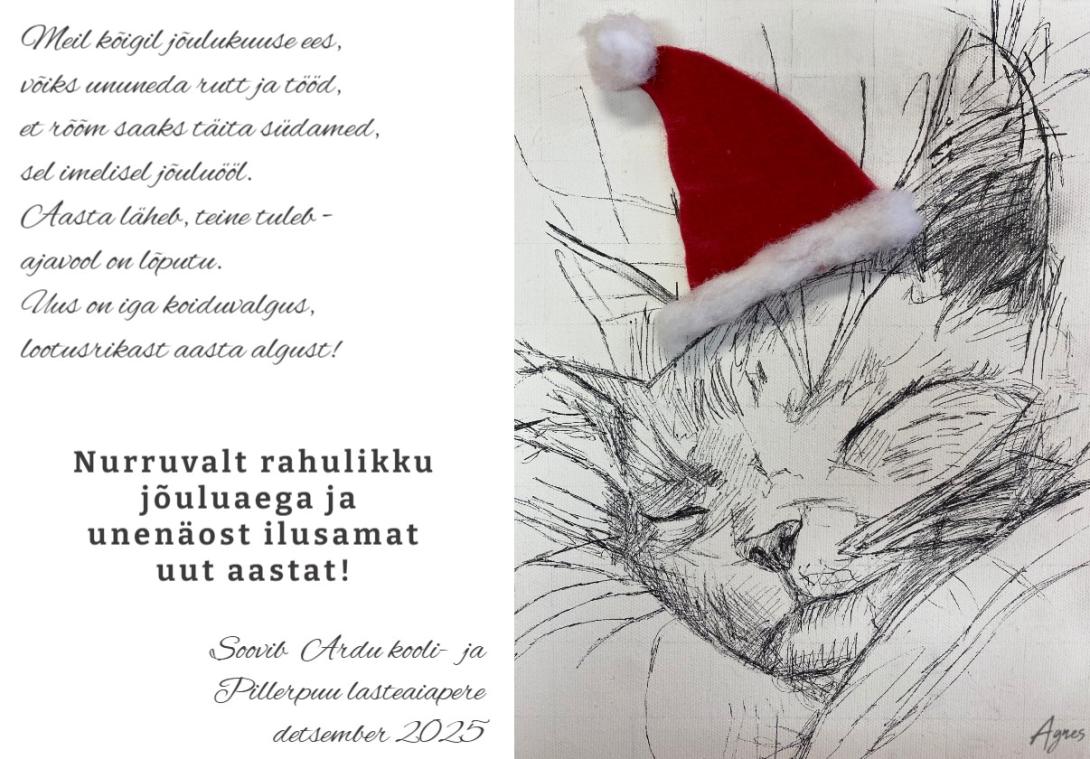 Meil kõigil jõulukuuse ees,
võiks ununeda rutt ja tööd,
et rõõm saaks täita südamed,
sel imelisel jõuluööl.
Aasta läheb, teine tuleb -
ajavool on lõputu.
Uus on iga koiduvalgus,
lootusrikast aasta algust!
Nurruvalt rahulikku
jõuluaega ja
unenäost ilusamat
uut aastat!
Soovib Ardu kooli- ja
Pillerpuu lasteaiapere
detsember 2025
Agnes